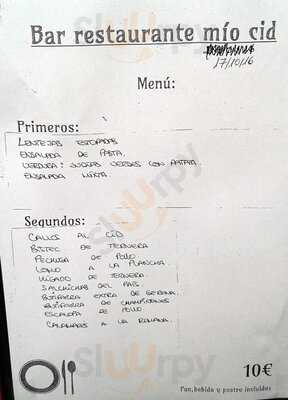 Bar restaurante mío cid
17/10/16
Menú:
Primeros:
LENTEJAS ESTOFADAS
ENSALADA DE PASTA.
VERDURA: JUDIAS VERDES CON PATATA.
ENSALADA MIXTA.
Segundos:
CALLOS AL CID
BISTEC DE TERNERA
PECHUGA DE POLLO
LOMO A LA PLANCHA.
HIGADO DE TERNERA.
SALCHICHAS DEL PAIS
BUTIFARRA EXTRA DE GERONA.
BUTIFARRA DE CHAMPIÑONES
ESCALOPA DE POLLO
CALAMARES A LA ROMANA.
10€
Pan, bebida y postre incluidos
Sluurpy